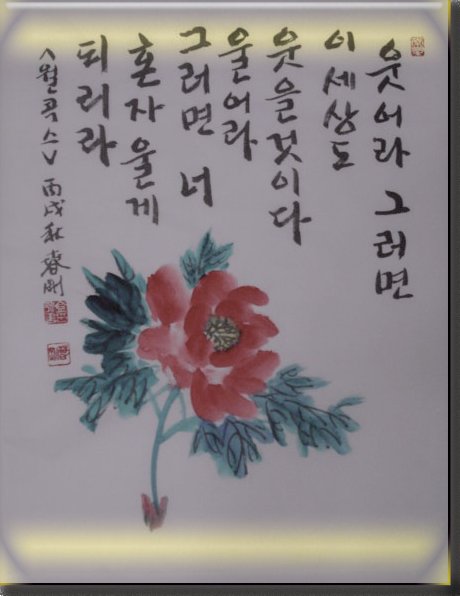 웃어라 그러면
이 세상도
웃을것이다
울어라
그러면 너
혼자 울게
되리라
<월콕스> 丙戌秋 春剛